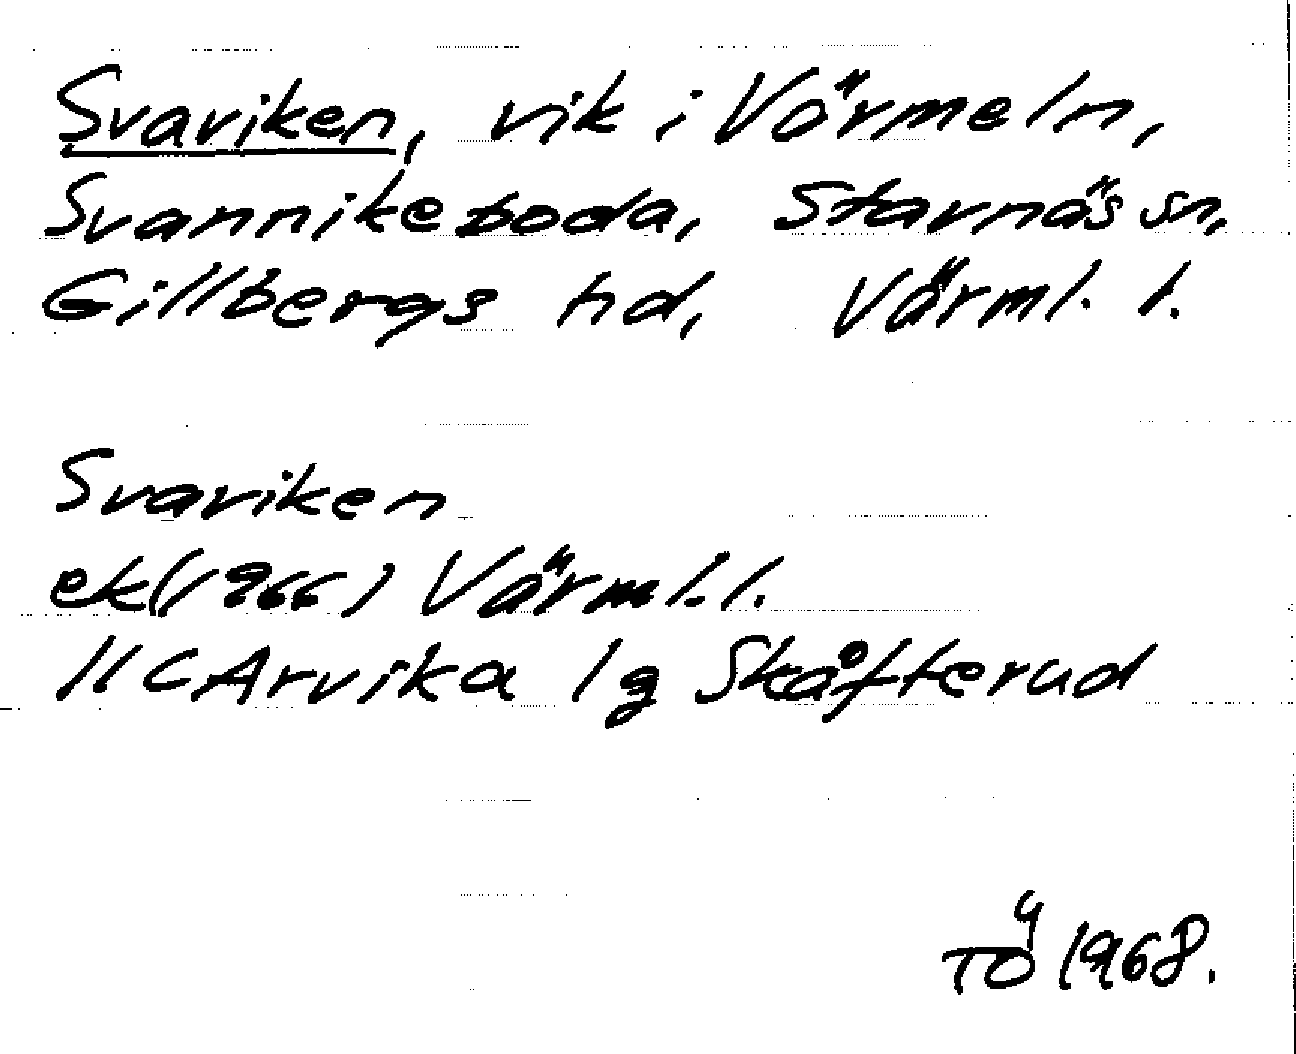 Svaviken, vik i Värmeln,
Svannikeboda, Stavnäs sn,
Gillbergs hd, Värml. l.
Svaviken
ek(1966) Värml. l.
11 C Arvika 1 g Skåfterud
TÖ 1968.